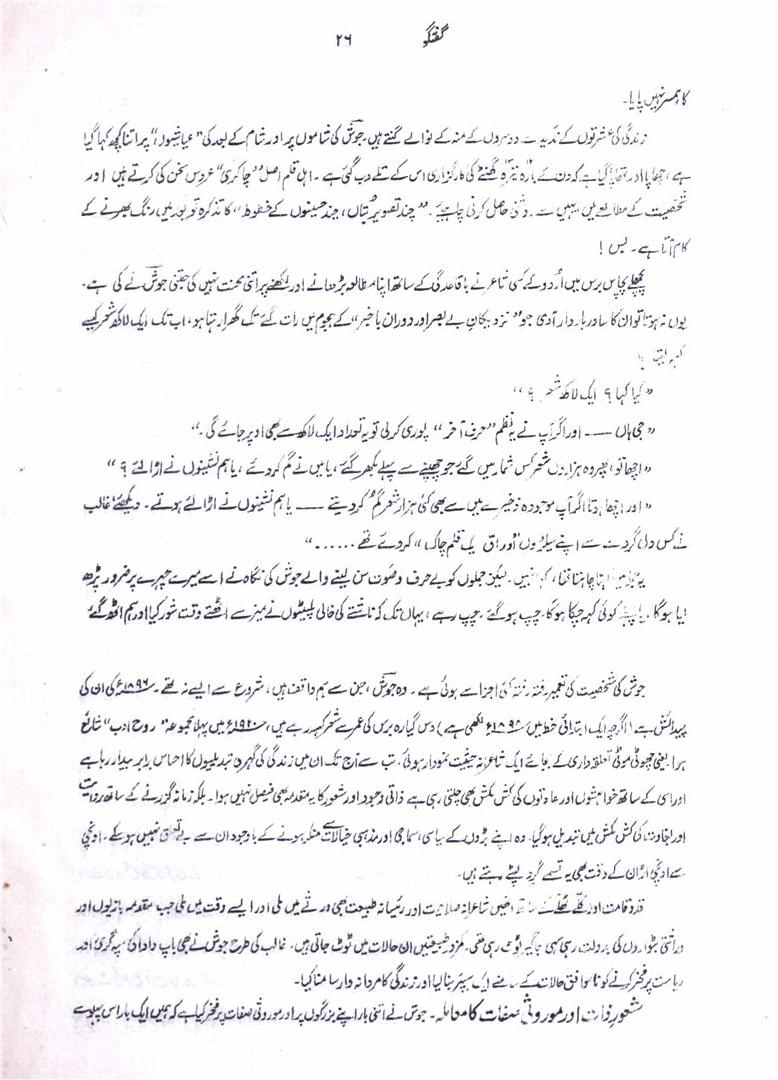 گفتگو ۲۶
کا ہمسر نہیں پایا۔
زندگی کی عشرتوں کے ندیدے دوسروں کے منہ کے نوالے گنتے ہیں۔ جوشؔ کی شاموں پر اور شام کے بعد کی "عیاشیوں" پر اتنا کچھ کہا گیا
ہے، چھاپا اور چھپایا گیا ہے کہ دن کے بارہ تیرہ گھنٹے کی کارگزاری اس کے تلے دب گئی ہے۔ اہلِ قلم اصل "چاکری" عروسِ سخن کی کرتے ہیں اور
شخصیت کے مطالعے میں یہیں سے روشنی حاصل کرنی چاہیئے۔ "چند تصویرِ بتاں، چند حسینوں کے خطوط" کا تذکرہ تو بعد میں رنگ بھرنے کے
کام آتا ہے۔ بس!
پچھلے پچاس برس میں اُردو کے کسی شاعر نے باقاعدگی کے ساتھ اپنا مطالعہ بڑھانے اور لکھنے پر اتنی محنت نہیں کی جتنی جوشؔ نے کی ہے۔
یوں نہ ہوتا تو ان کا سا دربار دار آدمی جو "نزدیکانِ بے بصر اور دورانِ باخبر" کے ہجوم میں رات گئے تک گھرا رہتا ہو، اب تک ایک لاکھ شعر کیسے
کہہ لیتا؟
"کیا کہا؟ ایک لاکھ شعر؟"
"جی ہاں —— اور اگر آپ نے یہ نظم "حرفِ آخر" پوری کر لی تو یہ تعداد ایک لاکھ سے بھی اوپر جائے گی۔"
"اچھا تو، پھر وہ ہزاروں شعر کس شمار میں گئے جو چھپنے سے پہلے بکھر گئے، یا میں نے گم کر دئے، یا ہم نشینوں نے اڑا لئے؟"
"اور اچھا ہوتا اگر آپ موجودہ ذخیرے میں سے بھی کئی ہزار شعر گم کر دیتے —— یا ہم نشینوں نے اڑا لئے ہوتے۔ دیکھئے غالب
نے کس دل گردے سے اپنے سیکڑوں اوراق یک قلم چاک" کر دئے تھے......"
یہ جملہ میں کہنا چاہتا تھا، کہا نہیں۔ لیکن جملوں کو بے حرف و صَوت سن لینے والے جوش کی نگاہ نے اسے میرے چہرے پر ضرور پڑھ
لیا ہوگا۔ یا پہلے کوئی کہہ چکا ہوگا، چپ ہو گئے۔ چپ رہے، یہاں تک کہ ناشتے کی خالی پلیٹوں نے میز سے اٹھتے وقت شور کیا اور ہم اٹھ گئے
جوش کی شخصیت کی تعمیر رفتہ رفتہ کئی اجزا سے ہوئی ہے۔ وہ جوشؔ، جن سے ہم واقف ہیں، شروع سے ایسے نہ تھے۔ ۱۸۹۶ء کی ان کی
پیدائش ہے (اگرچہ ایک ابتدائی خط میں ۱۸۹۸ء لکھی ہے) دس گیارہ برس کی عمر سے شعر کہہ رہے ہیں، ۱۹۲۰ء میں پہلا مجموعہ "روحِ ادب" شائع
ہوا یعنی چھوٹی موٹی تعلقہ داری کے بجائے ایک شاعرانہ حیثیت نمودار ہوئی۔ تب سے آج تک ان میں زندگی کی گہری تبدیلیوں کا احساس برابر بیدار رہا ہے
اور اسی کے ساتھ خواہشوں اور عادتوں کی کش مکش بھی چلتی رہی ہے ذاتی وجود اور شعور کا یہ مقدمہ بھی فیصل نہیں ہوا۔ بلکہ زمانہ گزرنے کے ساتھ روایت
اور بغاوت کی کش مکش میں تبدیل ہو گیا۔ وہ اپنے بڑوں کے سیاسی، سماجی اور مذہبی خیالات سے منکر ہونے کے باوجود ان سے بے تعلق نہیں ہو سکے۔ اونچی
سے اونچی اڑان کے وقت بھی یہ تسمے گرد لپٹے رہتے ہیں۔
قد و قامت اور کلّے ٹھلّے کے ساتھ انھیں شاعرانہ صلاحیت اور رئیسانہ طبیعت بھی ورثے میں ملی اور ایسے وقت میں ملی جب مقدمہ بازیوں اور
وراثتی بٹواروں کی بدولت رہی سہی جاگیر لٹی رہی تھی۔ کمزور طبیعتیں ان حالات میں ٹوٹ جاتی ہیں۔ غالب کی طرح جوش نے بھی باپ دادا کی سپہ گری اور
ریاست پر فخر کرنے کو ناموافق حالات کے سامنے ایک سپر بنا لیا اور زندگی کا مردانہ وار سامنا کیا۔
شعورِ ذات اور موروثی صفات کا معاملہ۔ جوش نے اتنی بار اپنے بزرگوں پر اور موروثی صفات پر فخر کیا ہے کہ ہمیں ایک بار اس پہلو سے